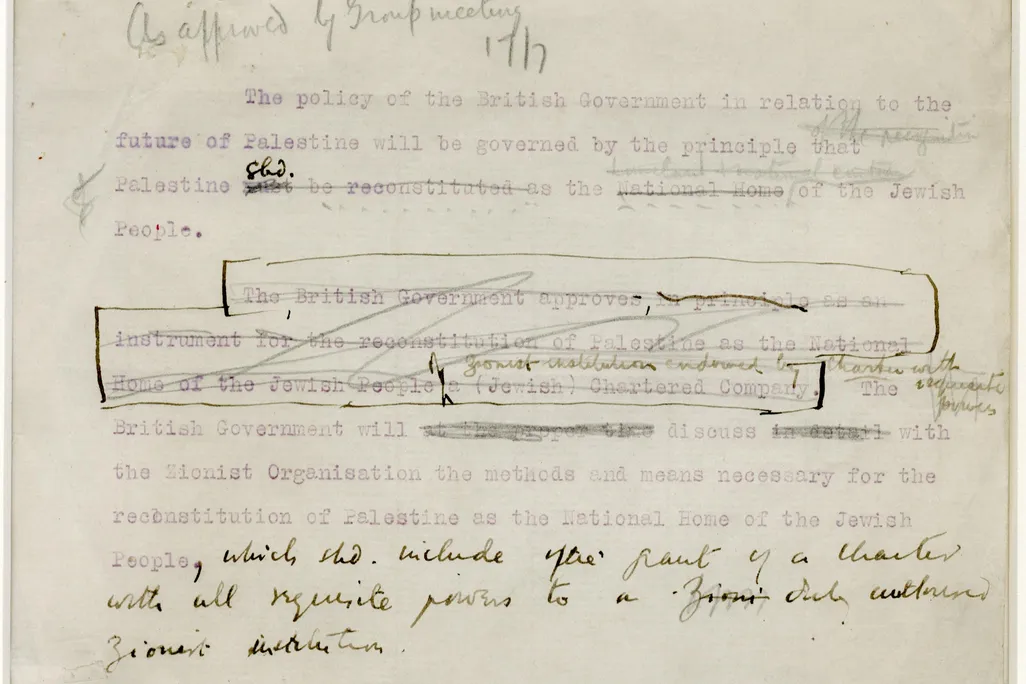 As approved by Group meeting
17/7
The policy of the British Government in relation to the
of the recognition
future of Palestine will be governed by the principle that
shd.
Palestine must be reconstituted as the National Home of the Jewish
People.
The British Government approves, in principle as an
instrument for the reconstitution of Palestine as the National
Zionist institution endowed by Charter with
requisite
powers
Home of the Jewish People a (Jewish) Chartered Company. The
British Government will at the proper time discuss in detail with
the Zionist Organisation the methods and means necessary for the
reconstitution of Palestine as the National Home of the Jewish
People, which shd. include the grant of a Charter
with all requisite powers to a Zioni duly authorised
Zionist institution.